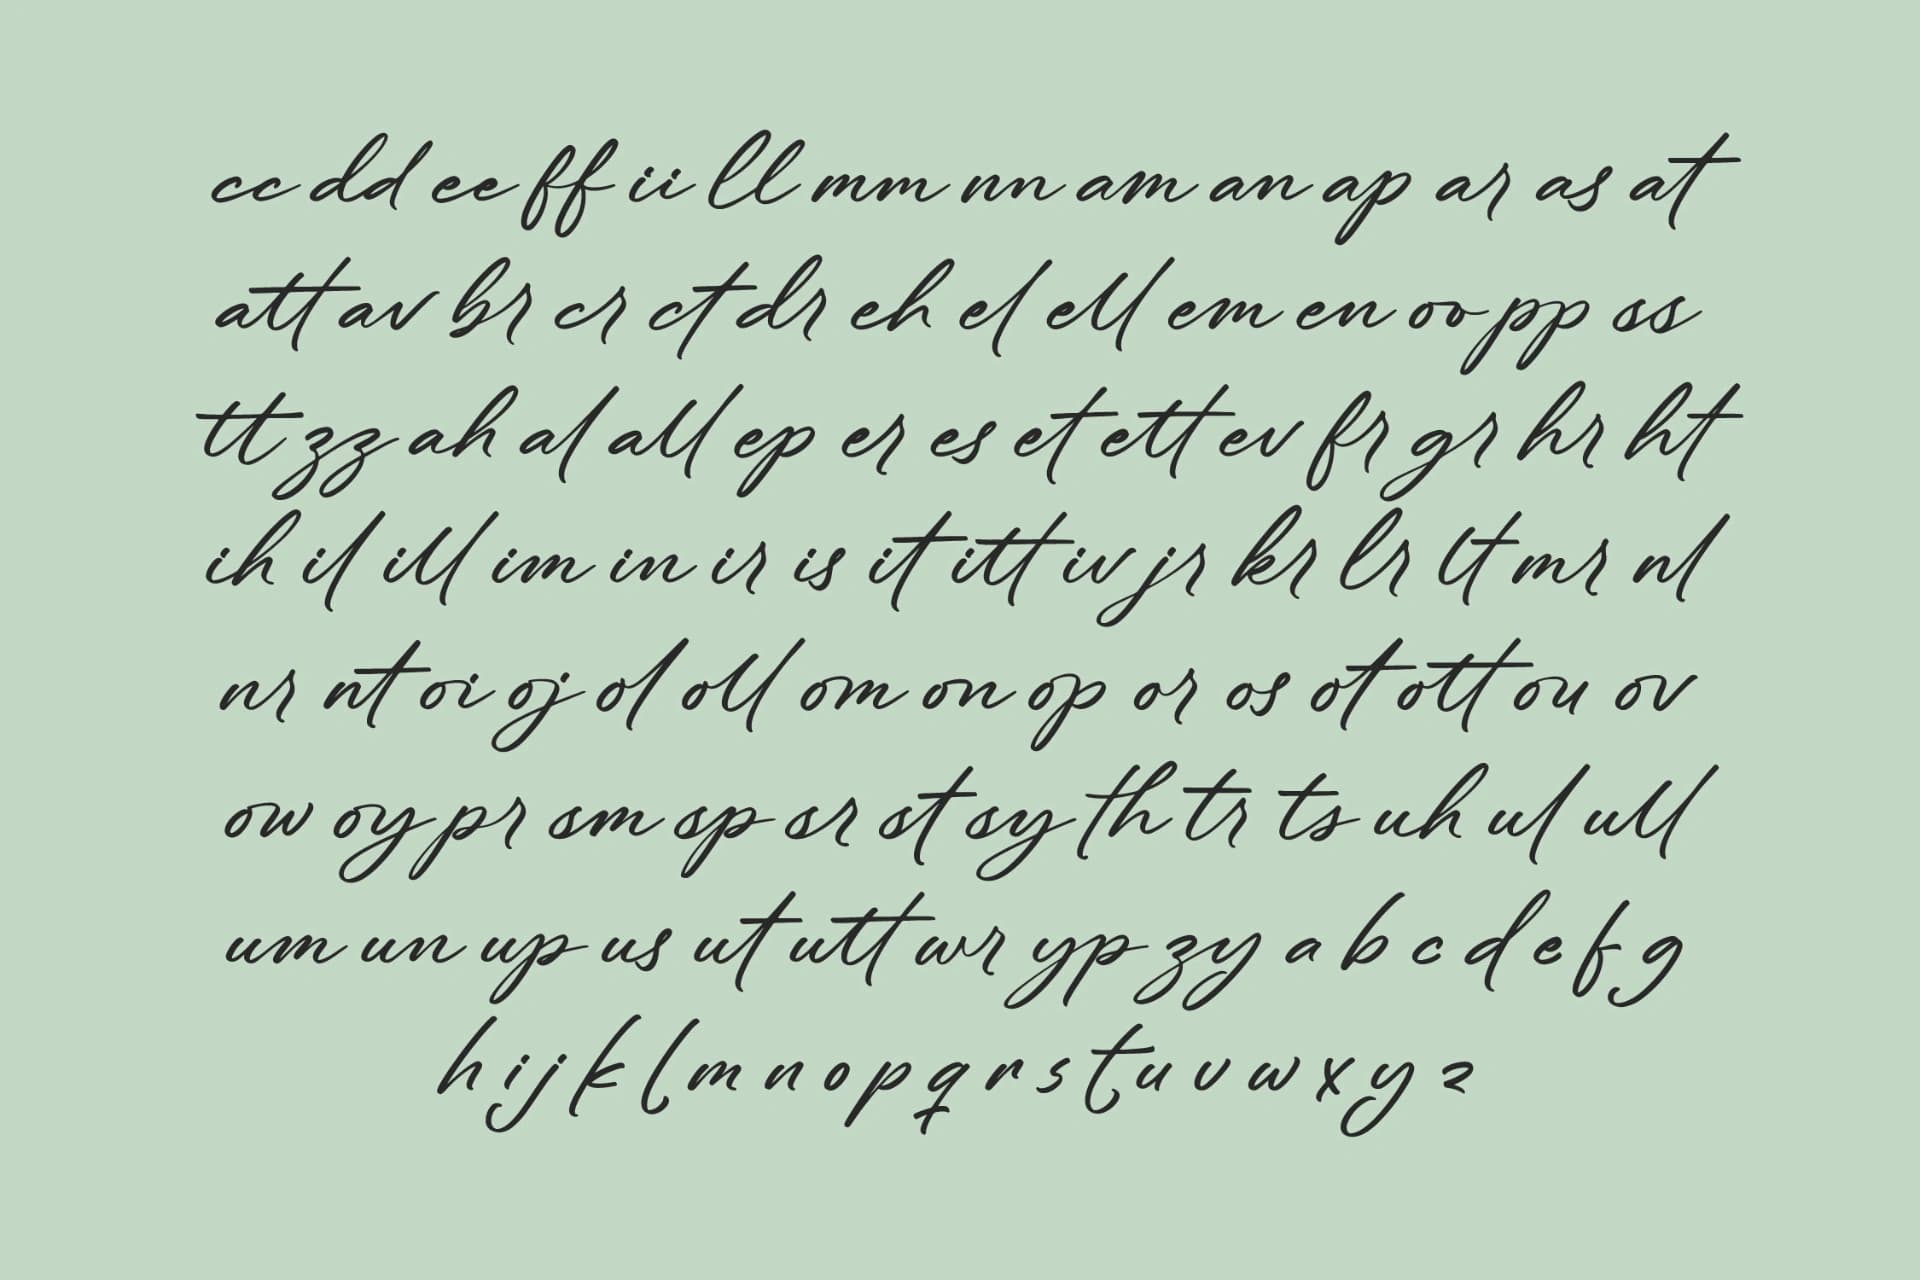 cc dd ee ff ii ll mm nn am an ap ar as at
att av br cr ct dr eh el ell em en oo pp ss
tt zz ah al all ep er es et ett ev fr gr hr ht
ih il ill im in ir is it itt iv jr kr lr lt mr nl
nr nt oi oj ol oll om on op or os ot ott ou ov
ow oy pr sm sp sr st sy th tr ts uh ul ull
um un up us ut utt wr yp zy a b c d e f g
h i j k l m n o p q r s t u v w x y z